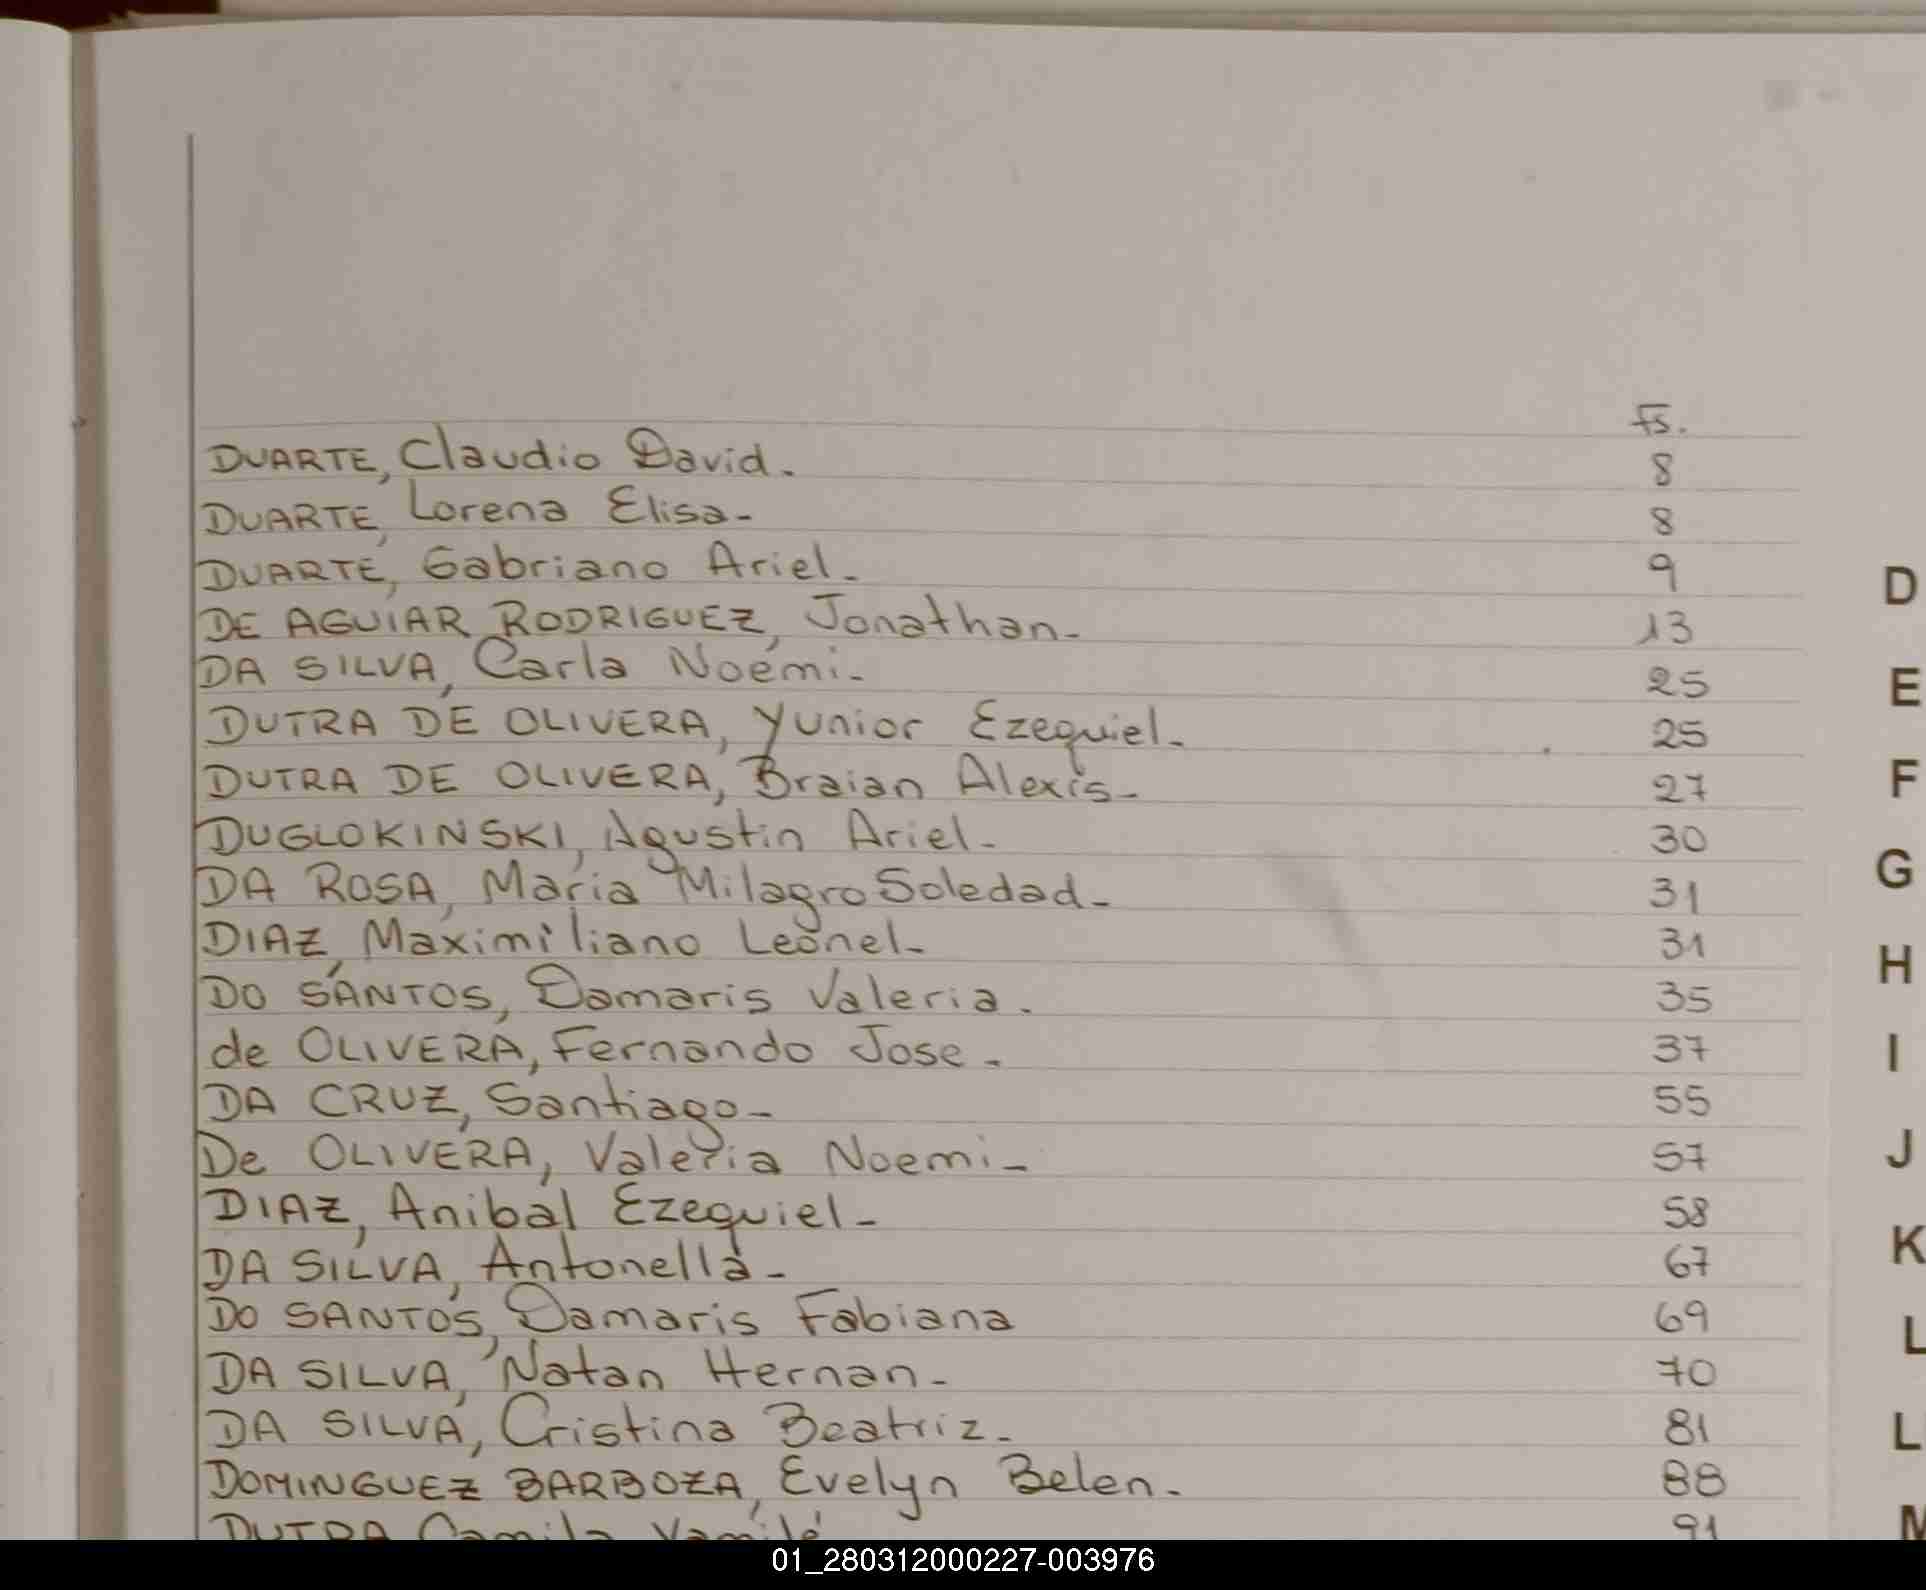 Fs.
DUARTE, Claudio David. 8
DUARTE, Lorena Elisa- 8
DUARTE, Gabriano Ariel- 9
DE AGUIAR RODRIGUEZ, Jonathan- 13
DA SILVA, Carla Noemi- 25
DUTRA DE OLIVERA, Yunior Ezequiel- 25
DUTRA DE OLIVERA, Braian Alexis- 27
DUGLOKINSKI, Agustin Ariel- 30
DA ROSA, Maria Milagro Soledad- 31
DIAZ, Maximiliano Leonel- 31
DO SANTOS, Damaris Valeria. 35
de OLIVERA, Fernando Jose. 37
DA CRUZ, Santiago- 55
De OLIVERA, Valeria Noemi- 57
DIAZ, Anibal Ezequiel- 58
DA SILVA, Antonella- 67
DO SANTOS, Damaris Fabiana 69
DA SILVA, Natan Hernan- 70
DA SILVA, Cristina Beatriz- 81
DOMINGUEZ BARBOZA, Evelyn Belen. 88
DUTRA Camila 91
D
E
F
G
H
I
J
K
L
L
M
01_280312000227-003976